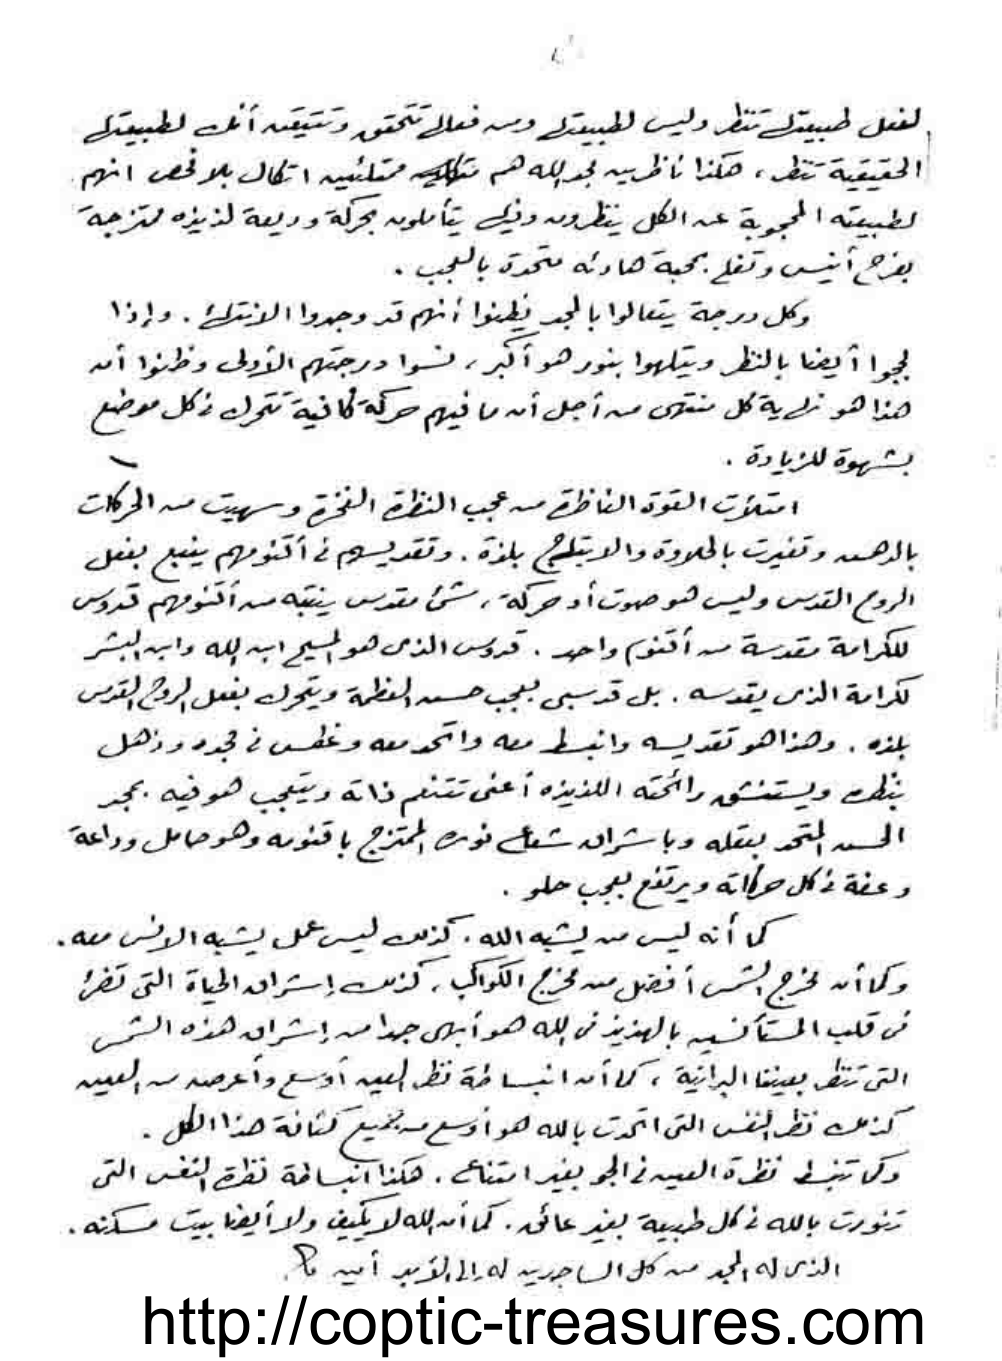 لفعل طبيعتك تنظر وليس لطبيعتك ومن فعالك تتحقق وتتيقن أنك لطبيعتك
الحقيقية تنظر ، هكذا ناظرين لمجد الله هم ممتلئين اتكال بلا فحص انهم
لطبيعته المحجوبة عن الكل ينظرون وفيك يتأملون بحركة وديعة لذيذه ممتزجة
بفرح أنيس وتغلى بمحبة هادئه متحدة بالعجب .
وكل درجة يتعالوا بالمجد يظنوا أنهم قد وجدوا الانتهاء . وإذا
لججوا أيضا بالنظر ويتلهوا بنور هو أكبر ، نسوا درجتهم الأولى وظنوا أن
هذا هو نهاية كل منتهى من أجل أن ما فيهم حركة كافية تتحرك فى كل موضع
بشهوة للزيادة .
امتلأت القوة الناظرة من عجب النظرة الفخرة وسهيت من الحركات
بالدهش وتغيرت بالحلاوة والابتهاج بلذة . وتقديسهم فى أقنومهم ينبع بفعل
الروح القدس وليس هو صوت أو حركة ، شئ مقدس ينتبه من أقنومهم قدوس
للكرامة مقدسة من أقنوم واحد . قدوس الذى هو المسيح ابن الله وابن البشر
لكرامة الذى يقدسه . بل قد سبى بعجب حسن العظمة ويتحرك بفعل الروح القدس
بلذه . وهذا هو تقديسه وانبسط معه واتحد معه وغطس فى مجده وذهل
بنظره ويستنشق رائحته اللذيذه أعنى تتنعم ذاته ويتعجب هو فيه بمجد
الحسن المتحد بعقله وباشراق شعاع نوره الممتزج باقنومه وهو حامل وداعة
وعفة فى كل حركاته ويرتفع بعجب حلو .
كما أنه ليس من يشبه الله . كذلك ليس عمل يشبه الانس معه .
وكما أن مخرج الشمس أفضل من مخرج الكواكب ، كذلك إشراق الحياة التى تضئ
فى قلب المستأنسين بالهذيذ فى الله هو أبهى جدا من إشراق هذه الشمس
التى تنظر بعيننا البرانية ، كما أن انبساطة نظر العين أوسع وأعرض من العين
كذلك نظر النفس التى اتحدت بالله هو أوسع من جميع كثافة هذا الكل .
وكما تنبسط نظرة العين فى الجو بغير امتناع . هكذا انبساطة نظرة النفس التى
تنورت بالله فى كل طبيعة بغير عائق . كما أن الله لا يكيف ولا أيضا بيت مسكنه .
الذى له المجد من كل الساجدين له إلى الأبد أمين
http://coptic-treasures.com